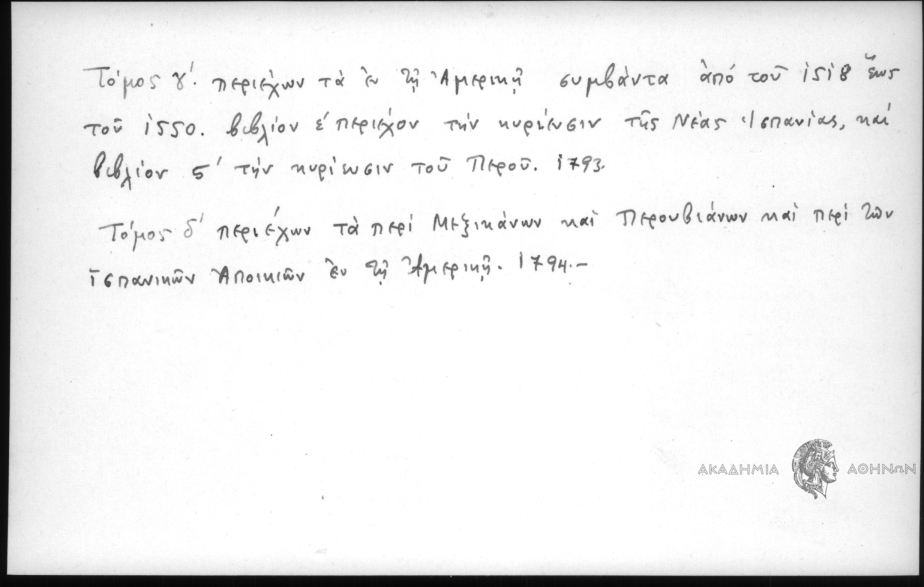 Τόμος γ΄. περιέχων τὰ ἐν τῇ Ἀμερικῇ συμβάντα ἀπό τοῦ 1518 ἕως
τοῦ 1550. βιβλίον ε΄ περιέχον τὴν κυρίευσιν τῆς Νέας Ἰσπανίας, καί
βιβλίον ς΄ τήν κυρίευσιν τοῦ Περοῦ. 1793.
Τόμος δ΄ περιέχων τὰ περί Μεξικάνων καί Περουβιάνων καί περί τῶν
ἱσπανικῶν Ἀποικιῶν ἐν τῇ Ἀμερικῇ. 1794.-
ΑΚΑΔΗΜΙΑ ΑΘΗΝΩΝ